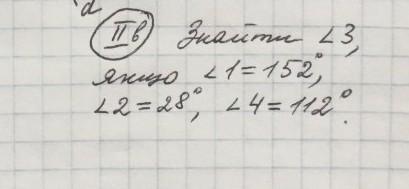 d
II в Знайти ∠3,
якщо ∠1 = 152°,
∠2 = 28°, ∠4 = 112°.